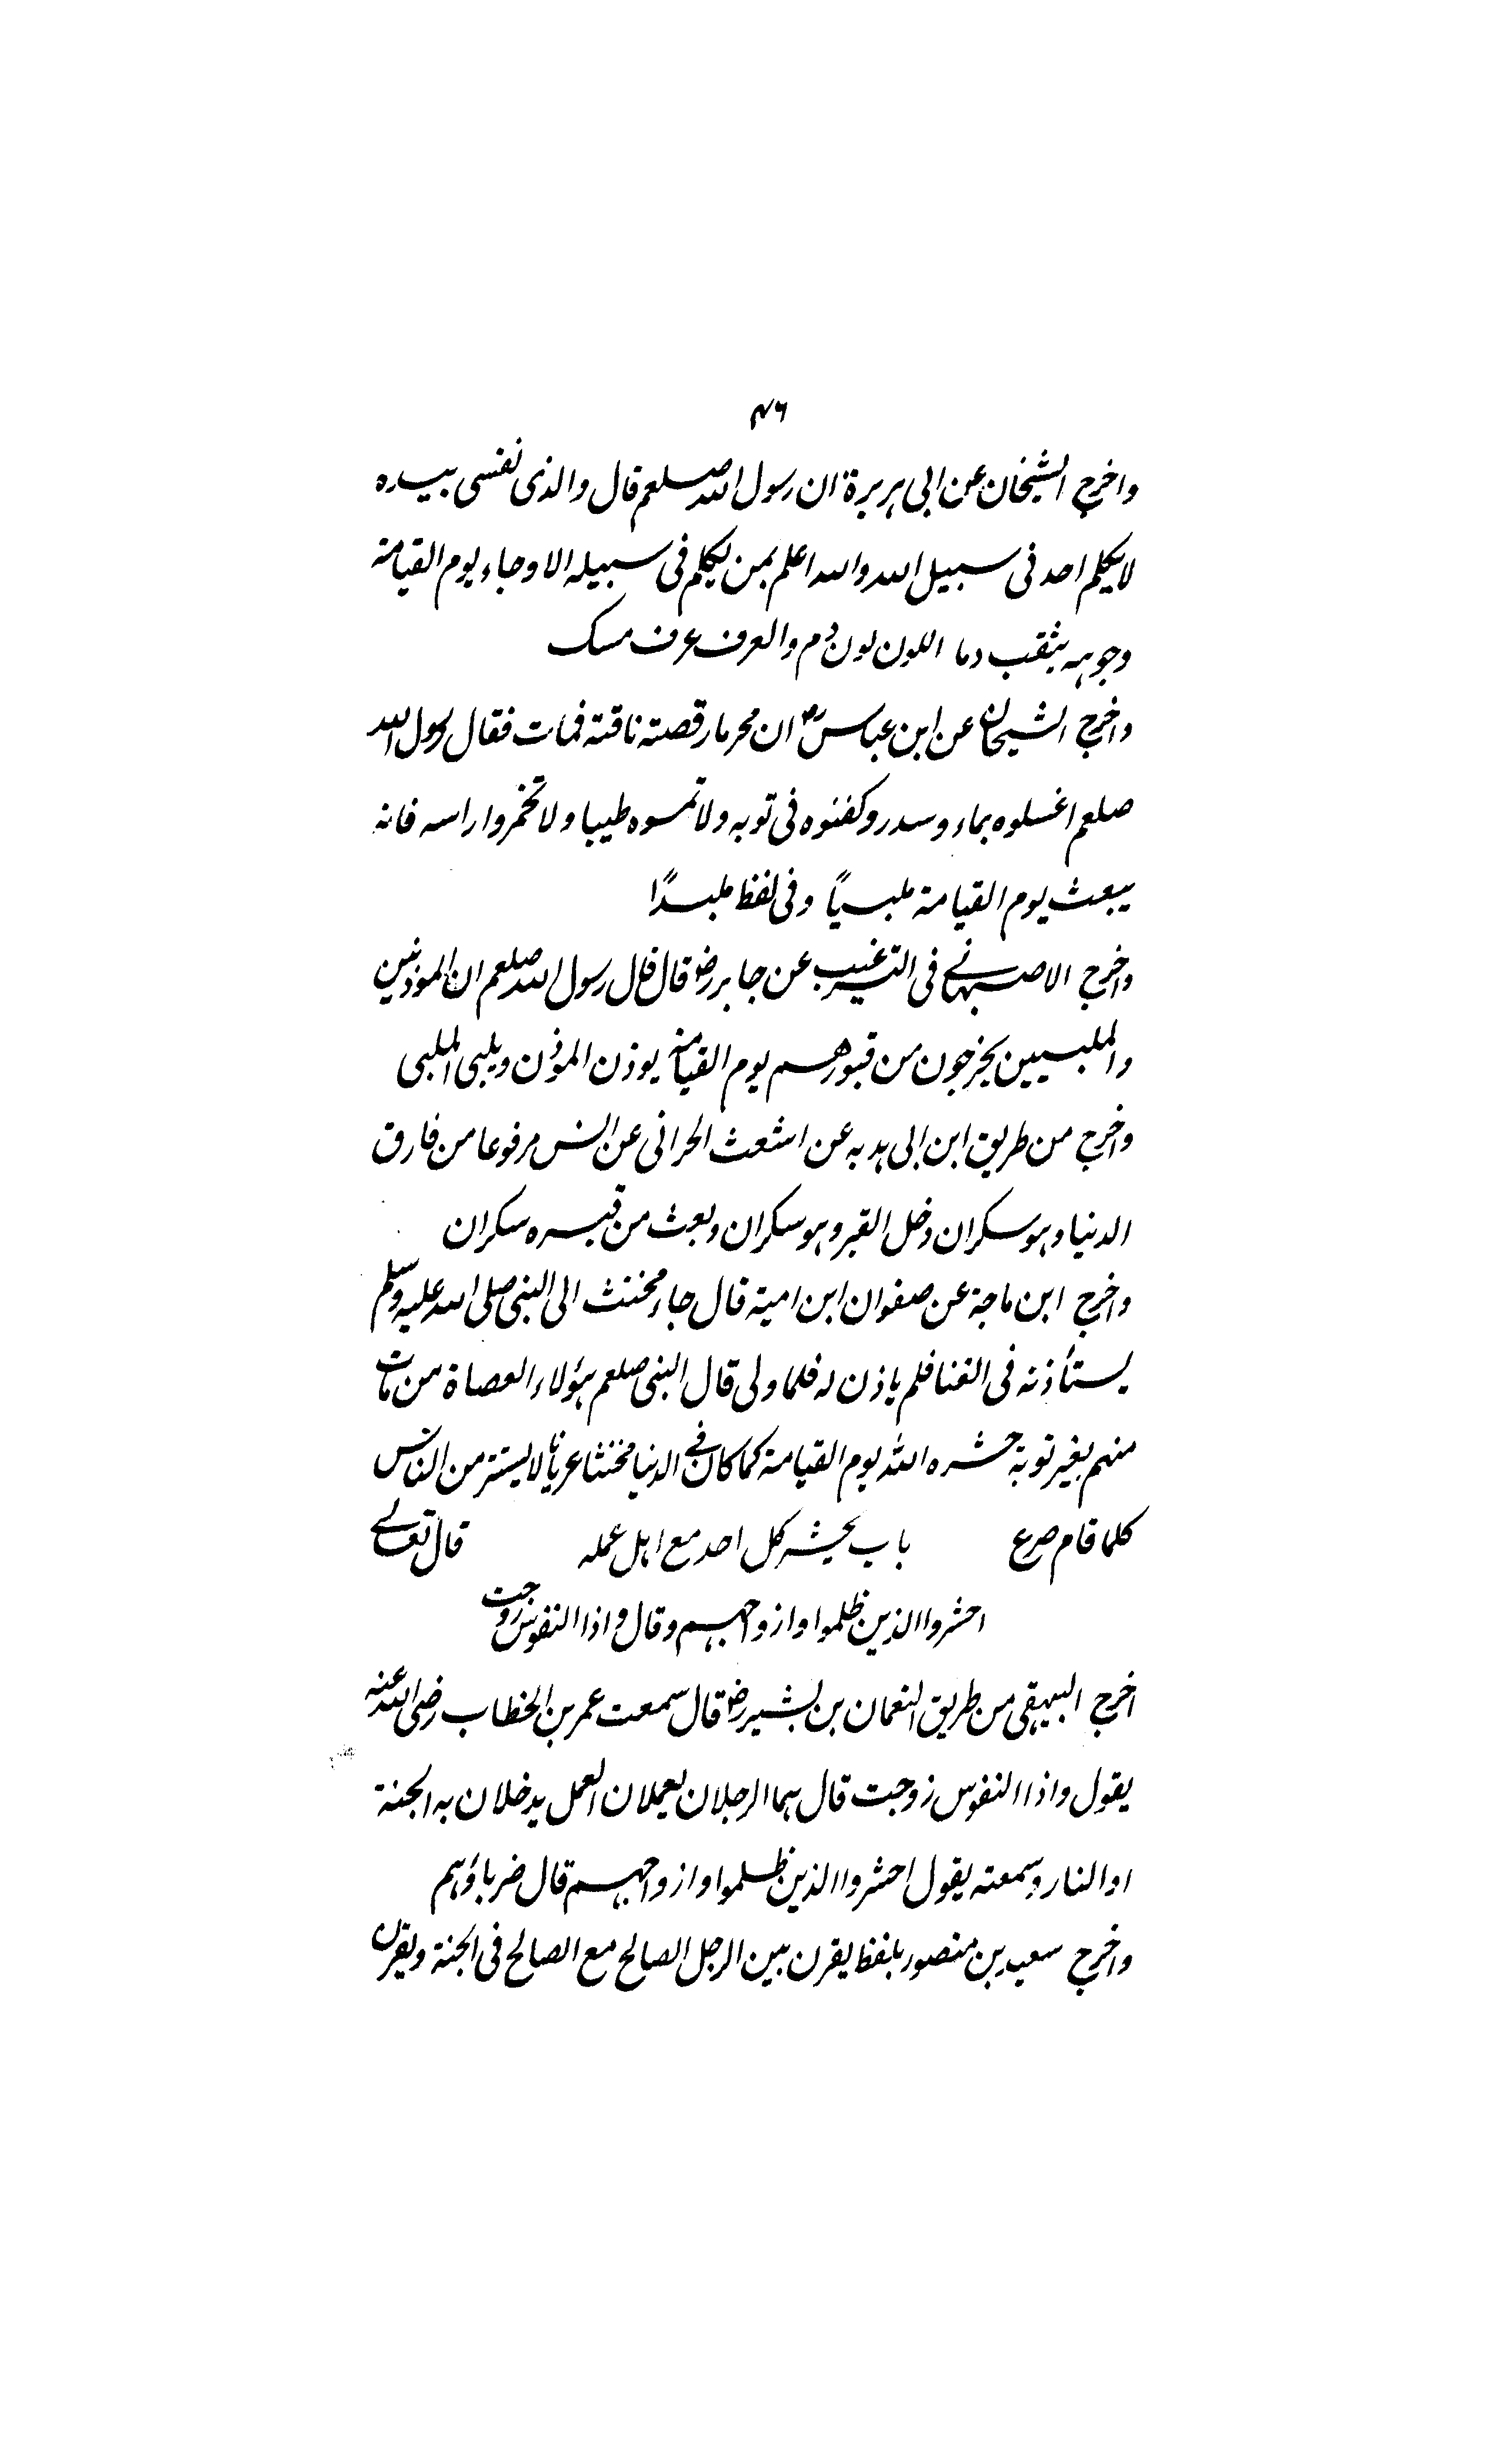 ۴۶
واخرج الشيخان عن ابى هريرة ان رسول الله صلعم قال والذى نفسى بيده
لا يكلم احد فى سبيل الله والله اعلم بمن يكلم فى سبيله الا وجاء يوم القيامة
وجوہہ يثقب دما اللون لون دم والعرف عرف مسك
واخرج الشيخان عن ابن عباس رض ان محرما رقصته ناقته فمات فقال رسول الله
صلعم اغسلوه بماء وسدر وكفنوه فى ثوبه ولا تمسوه طيبا ولا تخمروا راسه فانه
يبعث يوم القيامة ملبياً وفى لفظ ملبداً
واخرج الاصبهانى فى الترغيب عن جابر رض قال قال رسول الله صلعم ان الموذنين
والملبيين يخرجون من قبورهم يوم القيامة يوذن الموذن ويلبى الملبى
واخرج من طريق ابن ابى هدبه عن اشعث الحرانى عن انس مرفوعا من فارق
الدنيا وهو سكران دخل القبر وهو سكران وبعث من قبره سكران
واخرج ابن ماجة عن صفوان ابن امية قال جاء مخنث الى النبى صلى الله عليه وسلم
يستأذنه فى الغنا فلم ياذن له فلما ولى قال النبى صلعم هؤلاء العصاة من مات
منهم بغير توبة حشره الله يوم القيامة كما كان فى الدنيا مخنثا عريانا لا يستتر من الناس
كلما قام صرع باب يحشر كل احد مع اهل عمله قال تعالى
احشروا الذين ظلموا وازواجهم وقال واذا النفوس زوجت
اخرج البيهقى من طريق النعمان بن بشير رض قال سمعت عمر بن الخطاب رضى الله عنه
يقول واذا النفوس زوجت قال هما الرجلان يعملان العمل يدخلان به الجنة
او النار وسمعته يقول احشروا الذين ظلموا وازواجهم قال ضرباؤهم
واخرج سعيد بن منصور بلفظ يقرن بين الرجل الصالح مع الصالح فى الجنة ويقرن